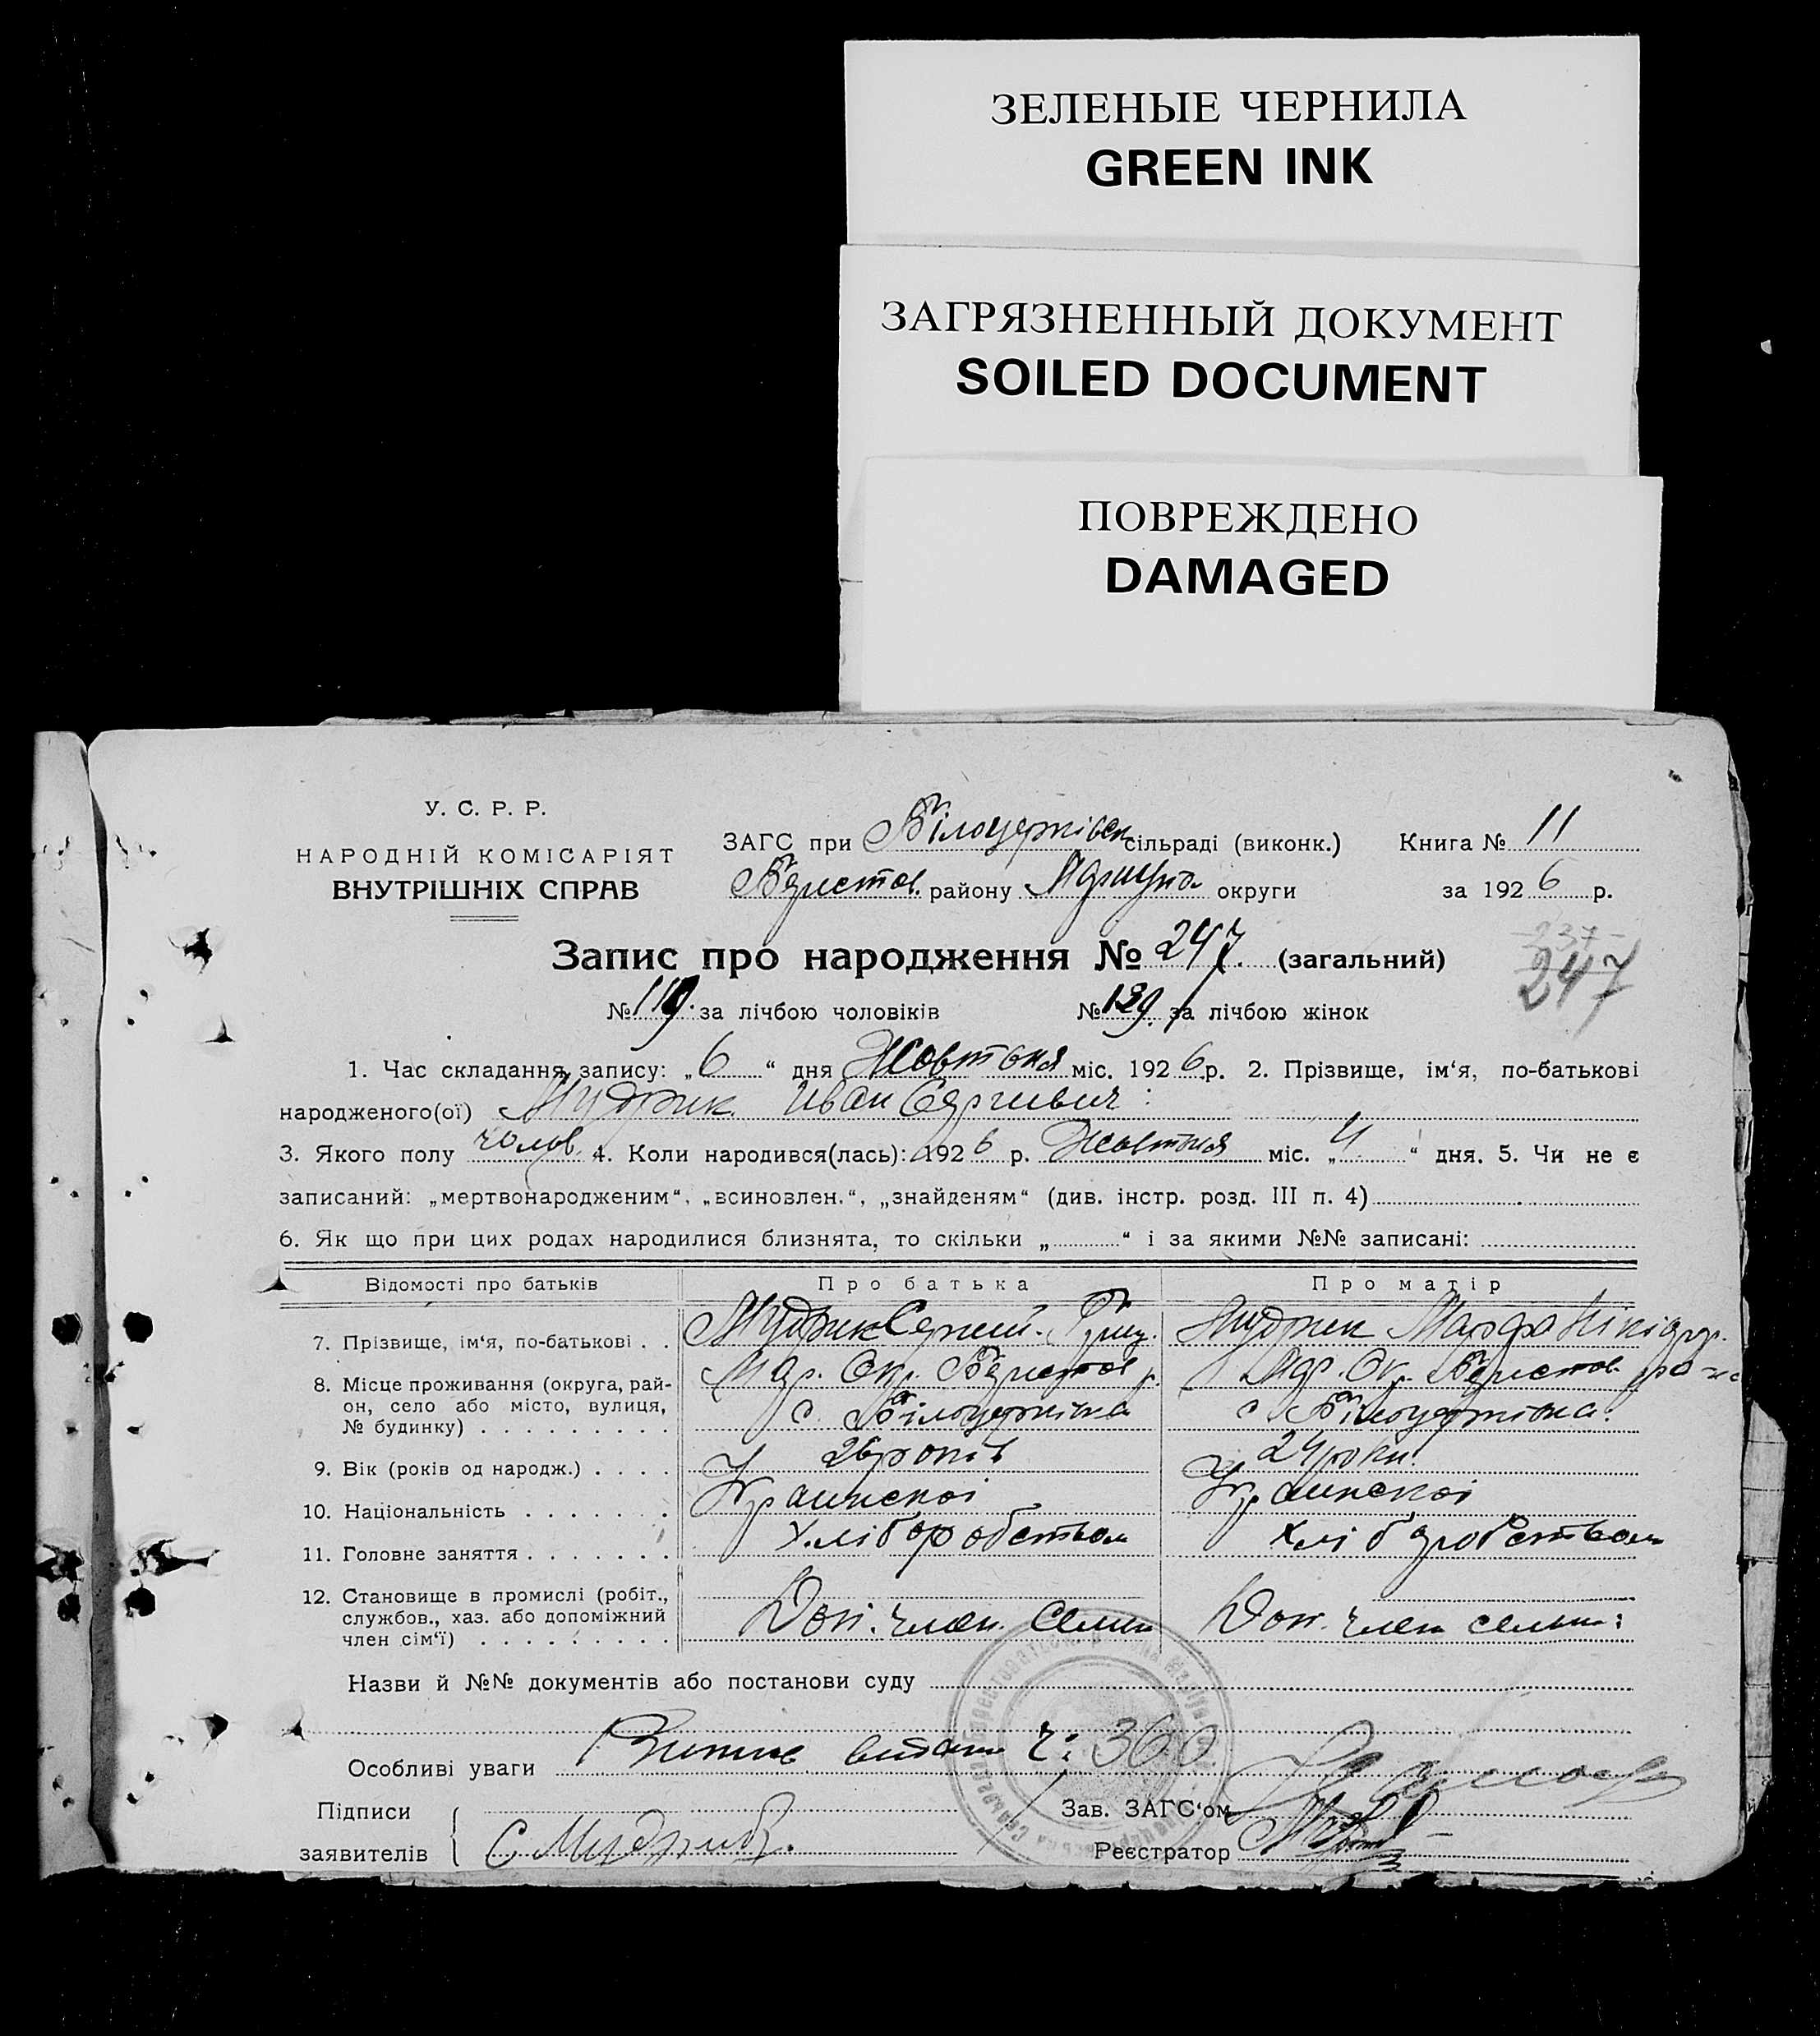 ЗЕЛЕНЫЕ ЧЕРНИЛА
GREEN INK
ЗАГРЯЗНЕННЫЙ ДОКУМЕНТ
SOILED DOCUMENT
ПОВРЕЖДЕНО
DAMAGED
У. С. Р. Р.
НАРОДНІЙ КОМІСАРІЯТ
ВНУТРІШНІХ СПРАВ
ЗАГС при Білоцерківск сільраді (виконк.) Книга № 11
району округи за 1926 р.
Запис про народження № 247. (загальний)
237
247
№ 119. за лічбою чоловіків № 139. за лічбою жінок
1. Час складання запису: „6“ дня Жовтня міс. 1926 р. 2. Прізвище, ім‘я, по-батькові
народженого(ої) Мудрик Иван Сергиевич
3. Якого полу чолов. 4. Коли народився(лась): 1926 р. Жовтня міс. „4“ дня. 5. Чи не є
записаний: „мертвонародженим“, „всиновлен.“, „знайденям“ (див. інстр. розд. III п. 4)
6. Як що при цих родах народилися близнята, то скільки „ “ і за якими №№ записані:
Відомості про батьків Про батька Про матір
7. Прізвище, ім‘я, по-батькові . . Мудрик Сергий Мудрик Марфа
8. Місце проживання (округа, рай-
он, село або місто, вулиця, с. Білоцерківка с. Білоцерківка
№ будинку) . . . . . . . . .
9. Вік (років од народж.) . . . . 26 років 24 роки
10. Національність . . . . . . . Украинскоі Украинскоі
11. Головне заняття . . . . . . . хліборобством хліборобством
12. Становище в промислі (робіт.,
службов., хаз. або допоміжний Доп. член семьи Доп. член семьи
член сім‘ї) . . . . . . . . .
Назви й №№ документів або постанови суду
Особливі уваги ч: 360
Підписи Зав. ЗАГС‘ом
заявителів С Мудрик Реєстратор